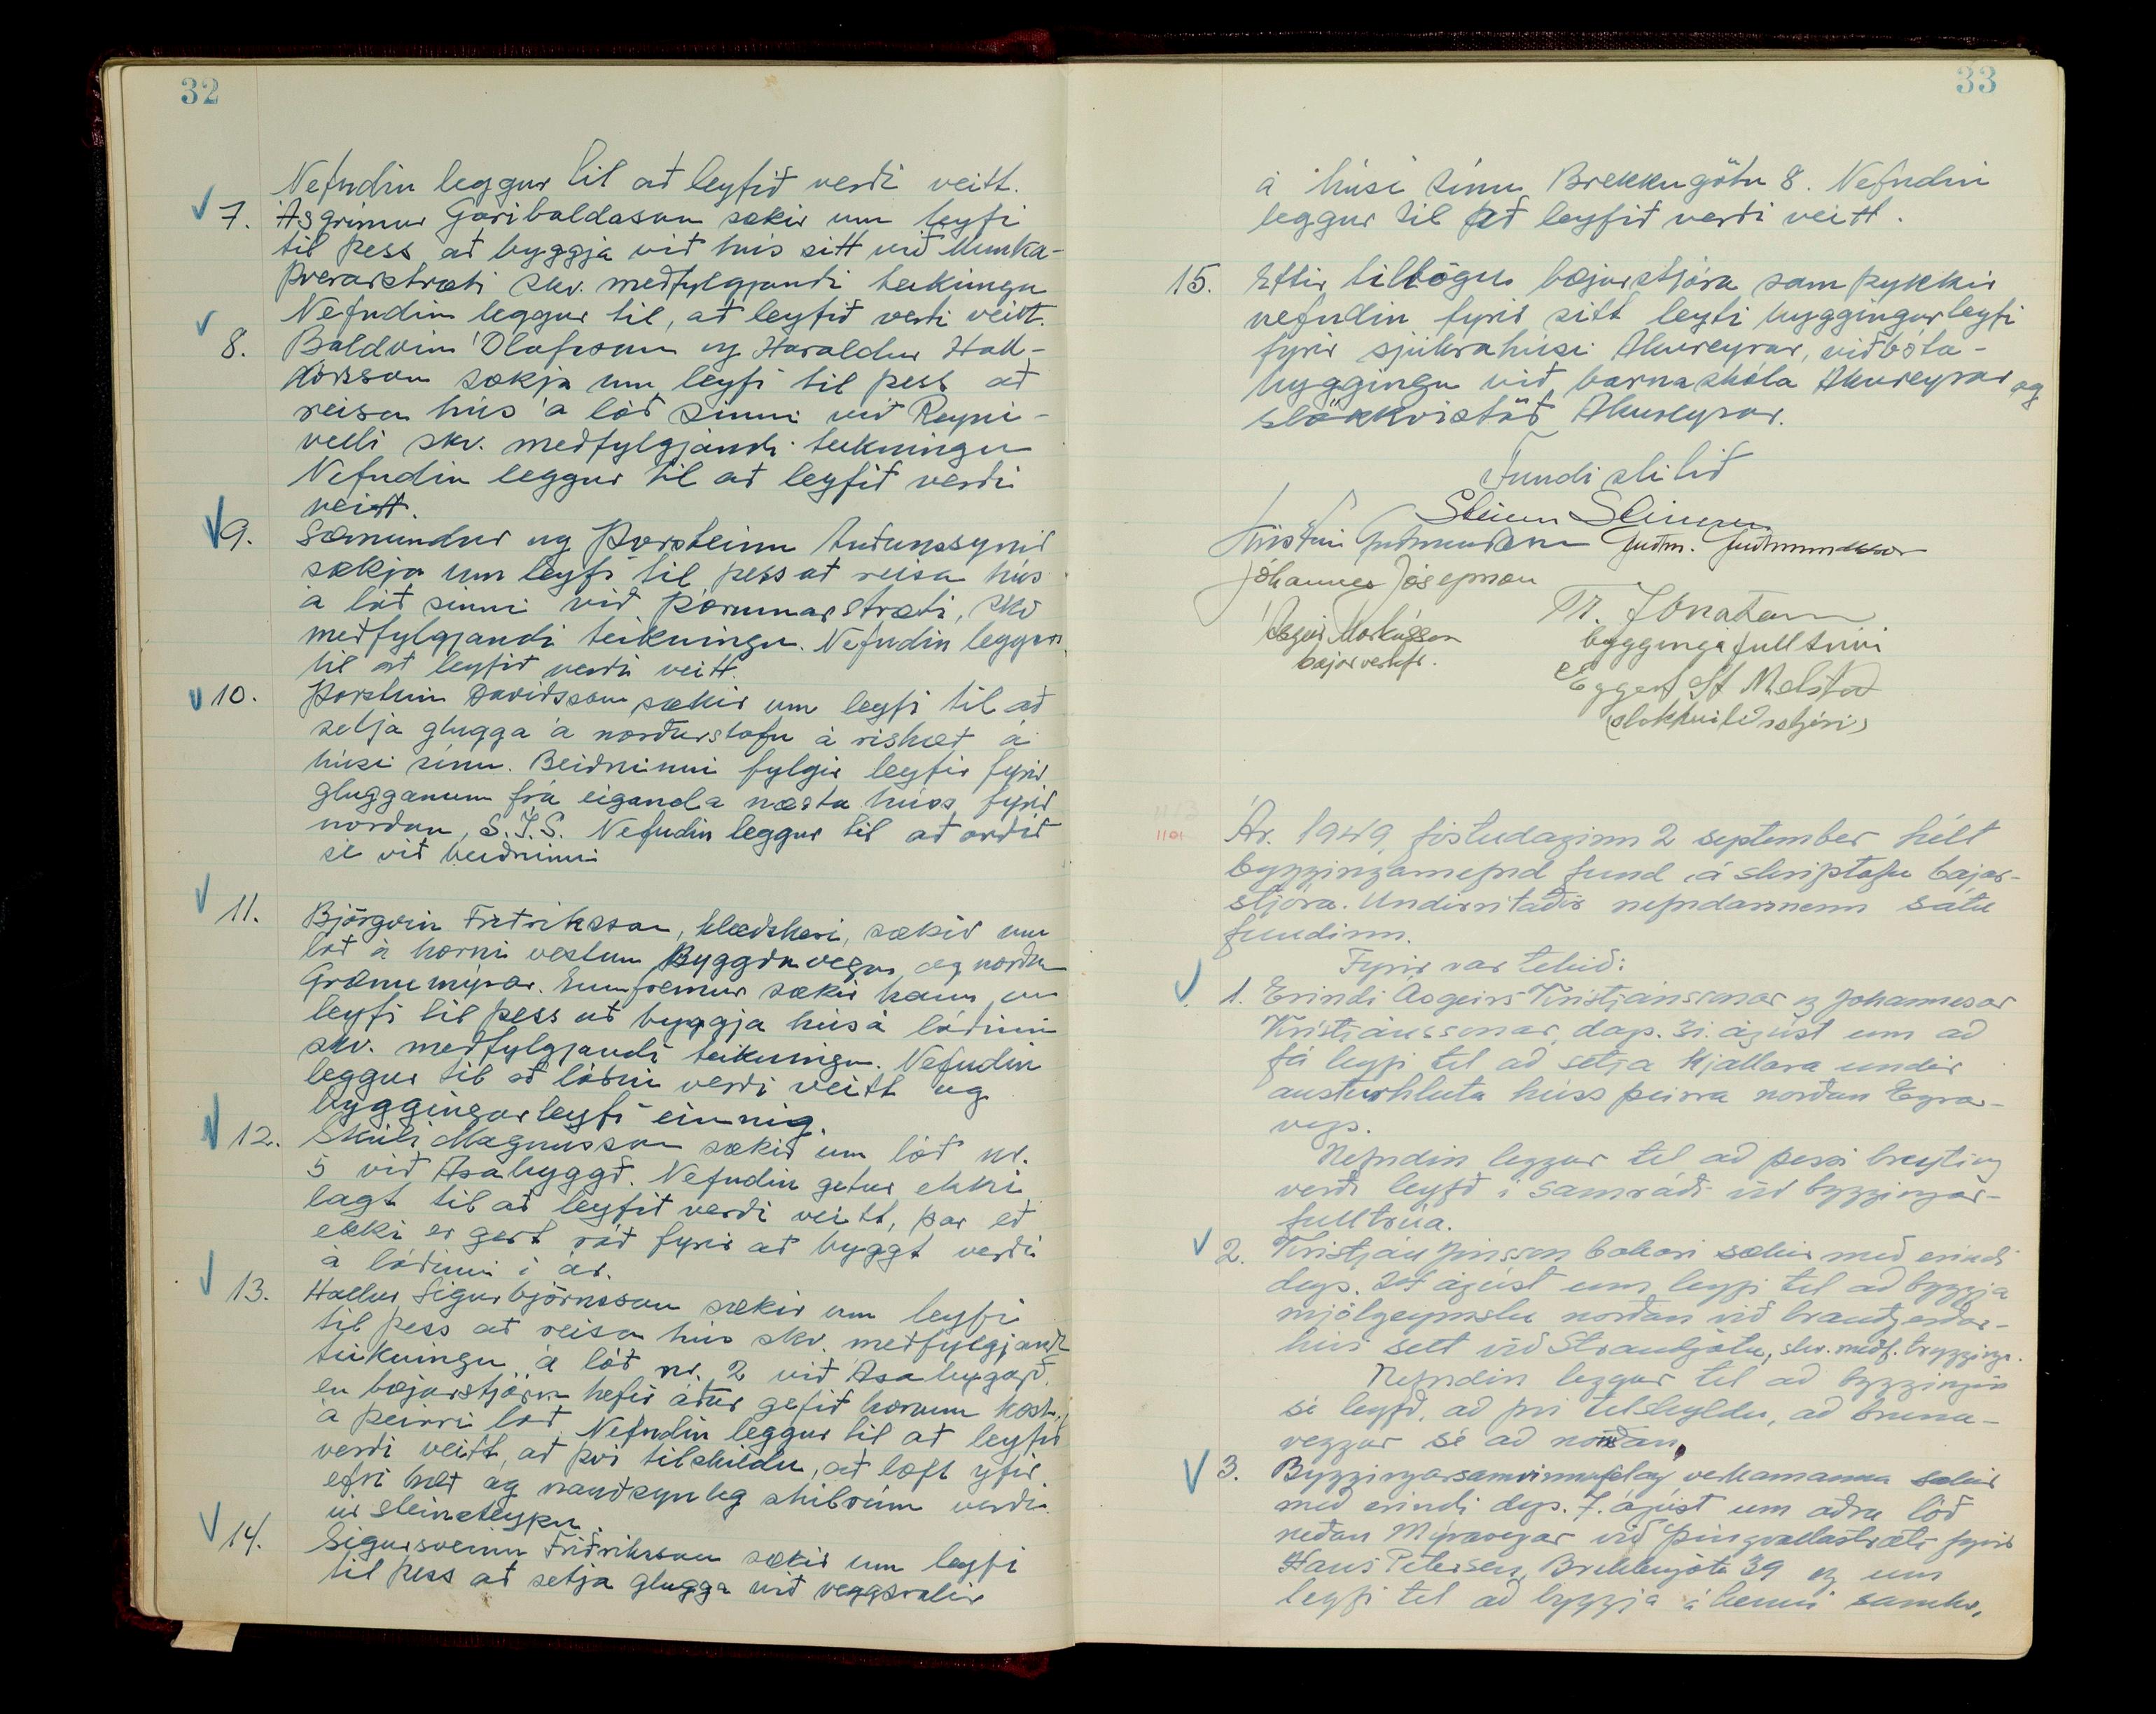 32
Nefndin leggur til að leyfið verði veitt.
7. Ásgrímur Garibaldason sækir um leyfi
til þess að byggja við hús sitt við Munka-
þverárstræti skv. meðfylgjandi teikningu
Nefndin leggur til, að leyfið verði veitt.
8. Baldvin Ólafsson og Haraldur Hall-
dórsson sækja um leyfi til þess að
reisa hús á lóð sinni við Reyni-
velli skv. meðfylgjandi teikningu
Nefndin leggur til að leyfið verði
veitt.
9. Sæmundur og Þorsteinn Auðunssynir
sækja um leyfi til þess að reisa hús
á lóð sinni við Þórunnarstræti, skv
meðfylgjandi teikningu. Nefndin leggur
til að leyfið verði veitt.
10. Þorsteinn Davíðsson sækir um leyfi til að
setja glugga á norðurstofu á rishæð á
húsi sínu. Beiðninni fylgir leyfir fyrir
glugganum frá eiganda næsta húss fyrir
norðan, S.Í.S. Nefndin leggur til að orðið
sé við beiðninni
11. Björgvin Friðriksson, klæðskeri, sækir um
lóð á horni vestan Byggðavegar og norðan
Grænumýrar. Ennfremur sækir hann um
leyfi til þess að byggja hús á lóðinni
skv. meðfylgjandi teikningu. Nefndin
leggur til að lóðin verði veitt og
byggingarleyfi einnig.
12. Skúli Magnússon sækir um lóð nr.
5 við Ásabyggð. Nefndin getur ekki
lagt til að leyfið verði veitt, þar eð
ekki er gert ráð fyrir að byggt verði
á lóðinni í ár.
13. Hallur Sigurbjörnsson sækir um leyfi
til þess að reisa hús skv. meðfylgjandi
teikningu á lóð nr. 2 við Ásabyggð,
en bæjarstjórn hefir áður gefið honum kost
á þeirri lóð. Nefndin leggur til að leyfið
verði veitt, að því tilskildu, að loft yfir
efri hæð og nauðsynleg skilrúm verði
úr steinsteypu.
14. Sigursveinn Friðriksson sækir um leyfi
til þess að setja glugga við veggsvalir
33
á húsi sínu Brekkugötu 8. Nefndin
leggur til að leyfið verði veitt.
15. Eftir tillögu bæjarstjóra samþykkir
nefndin fyrir sitt leyti byggingarleyfi
fyrir sjúkrahúsi Akureyrar, viðbóta-
byggingu við barnaskóla Akureyrar og
slökkvistöð Akureyrar.
Fundi slitið
Steinn Steinsen
Kristín Guðmundsson Guðm. Guðmundsson
Jóhannes Jósepsson
Tr. Jónatansson
Ásgeir Markússon
byggingafulltrúi
bæjarverkfr.
Eggert St Melstað
slökkviliðsstjóri
1101
Ár. 1949, föstudaginn 2 september hélt
bygginganefnd fund á skrifstofu bæjar-
stjóra. Undirritaðir nefndarmenn sátu
fundinn.
Fyrir var tekið:
1. Erindi Ásgeirs Kristjánssonar og Jóhannesar
Kristjánssonar, dags. 31. ágúst um að
fá leyfi til að setja kjallara undir
austurhluta húss þeirra norðan Eyrar-
vegs.
Nefndin leggur til að þessi breyting
verði leyfð í samráði við byggingar-
fulltrúa.
2. Kristján Jónsson bakari sækir með erindi
dags. 24 ágúst um leyfi til að byggja
mjölgeymslu norðan við brauðgerðar-
hús sitt við Strandgötu, skv. meðf. bygginga.
Nefndin leggur til að byggingin
sé leyfð, að því tilskyldu, að bruna-
veggur sé að norðan.
3. Byggingarsamvinnufélag verkamanna sækir
með erindi dags. 7. ágúst um aðra lóð
neðan Mýravegar við Þingvallastræti fyrir
Hans Petersen, Brekkugötu 39 og um
leyfi til að byggja á henni samkv.